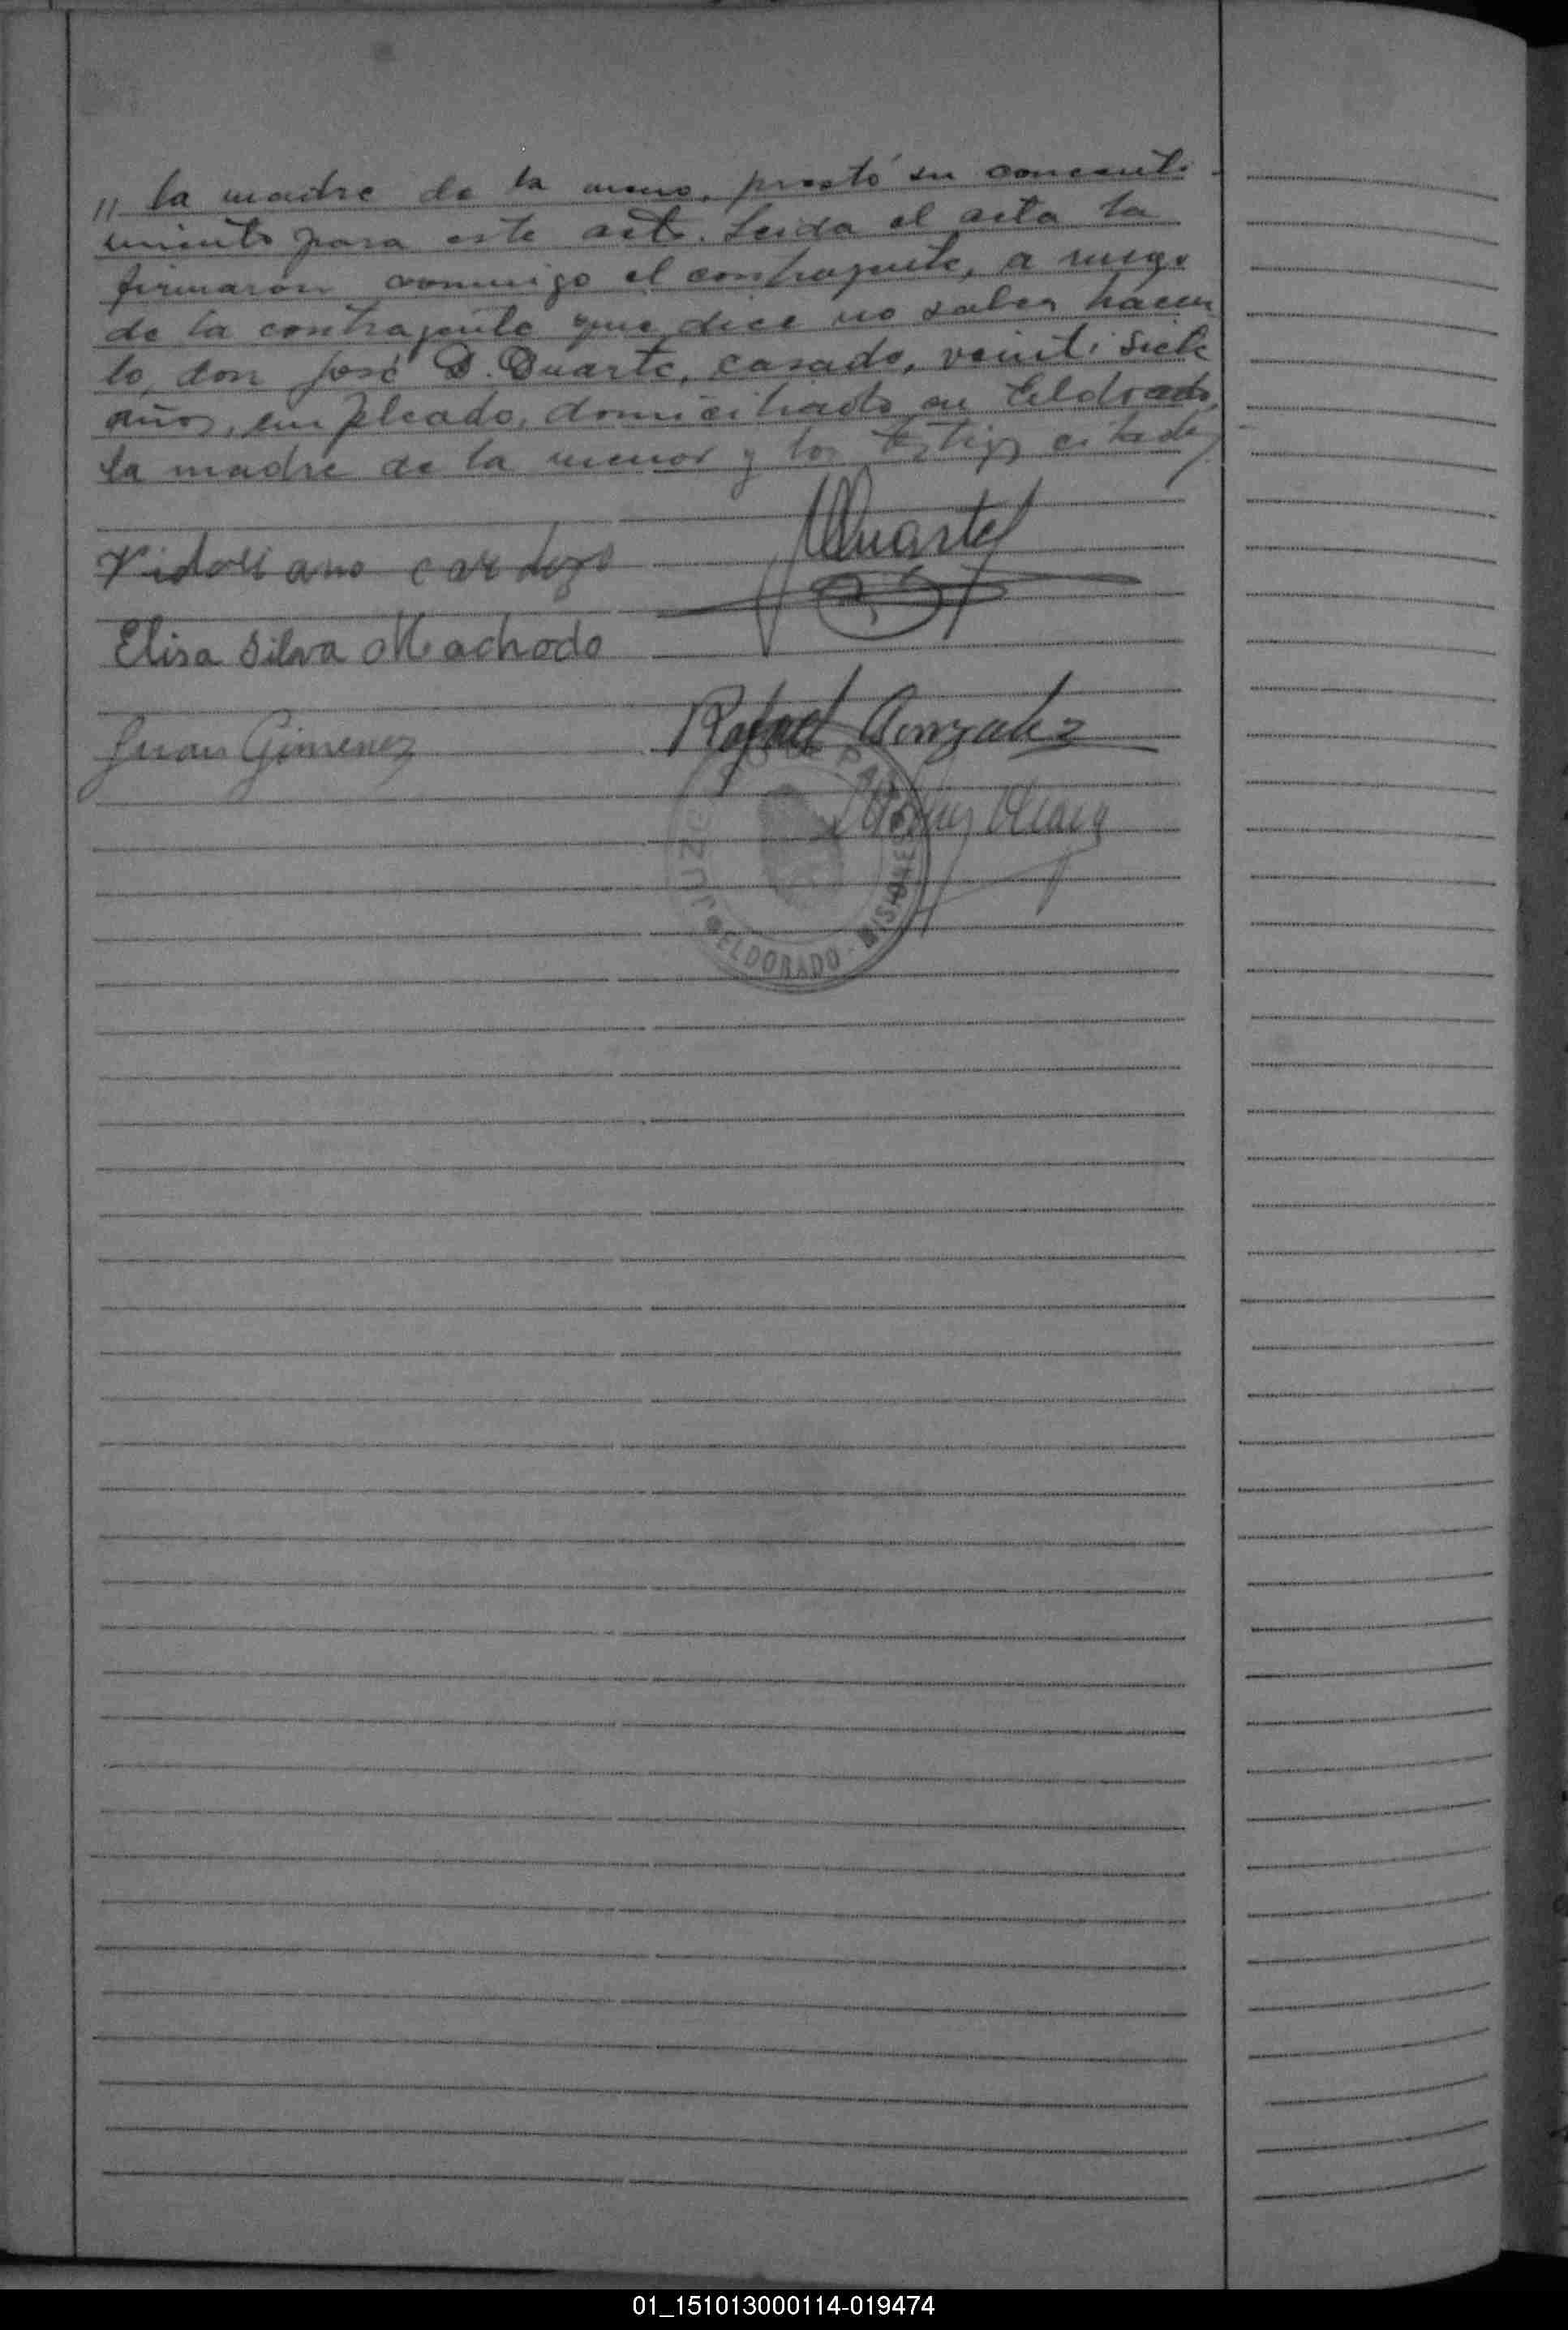 // la madre de la menor, prestó su concenti
miento para este acto. Leida el acta la
firmaron conmigo el contrayente, a ruego
de la contrayente que dice no saber hacer
lo, don José D. Duarte, casado, veinti siete
años, empleado, domiciliado en Eldorado,
la madre de la menor y los testigos citados
Duarte
Vidoriano cardozo
Elisa Silva Machado
Juan Gimenez
Rafael Gonzalez
JUZ
ELDORADO - MISIONES
01_151013000114-019474